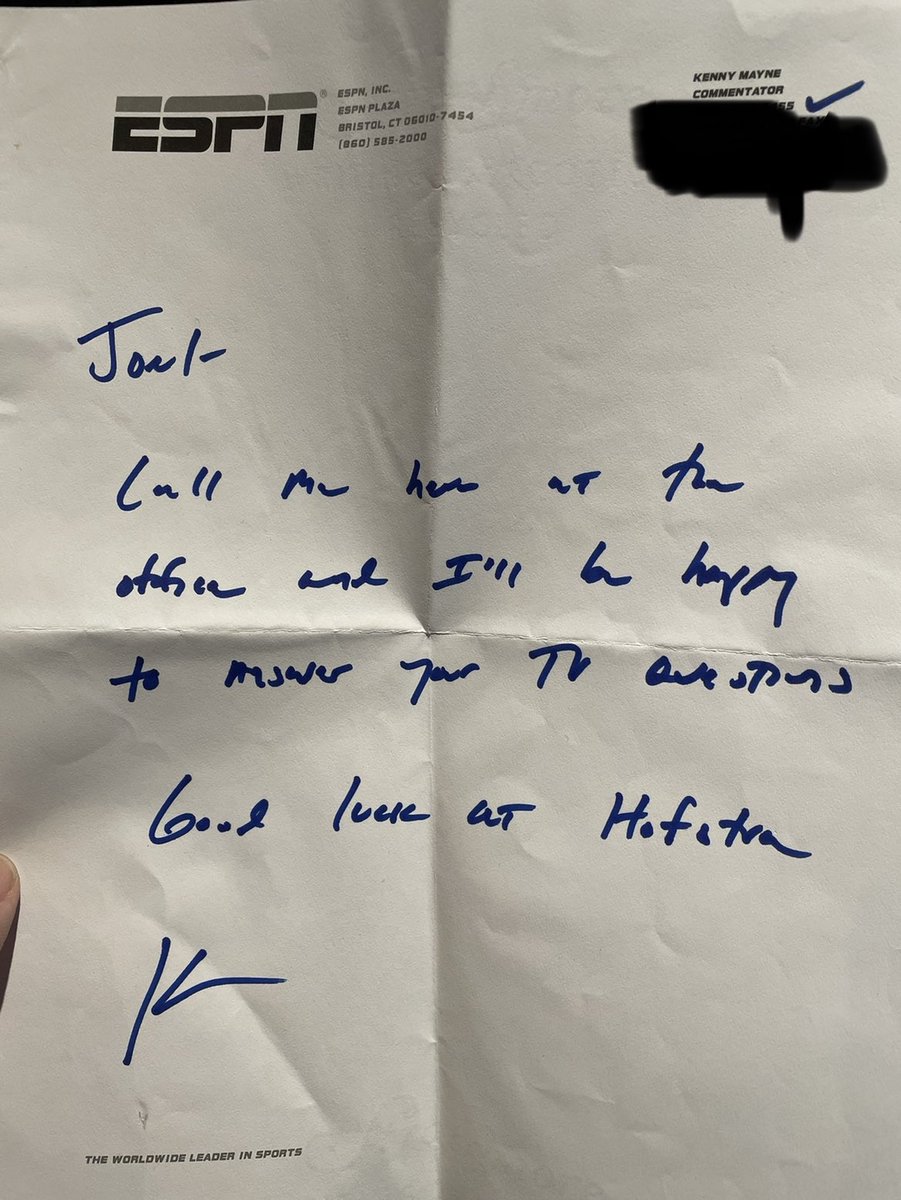 ESPN®
ESPN, INC.
ESPN PLAZA
BRISTOL, CT 06010-7454
(860) 585-2000
KENNY MAYNE
COMMENTATOR
Call me here at the
office and I'll be happy
to answer your TV Questions
Good luck at Hofstra
K
THE WORLDWIDE LEADER IN SPORTS